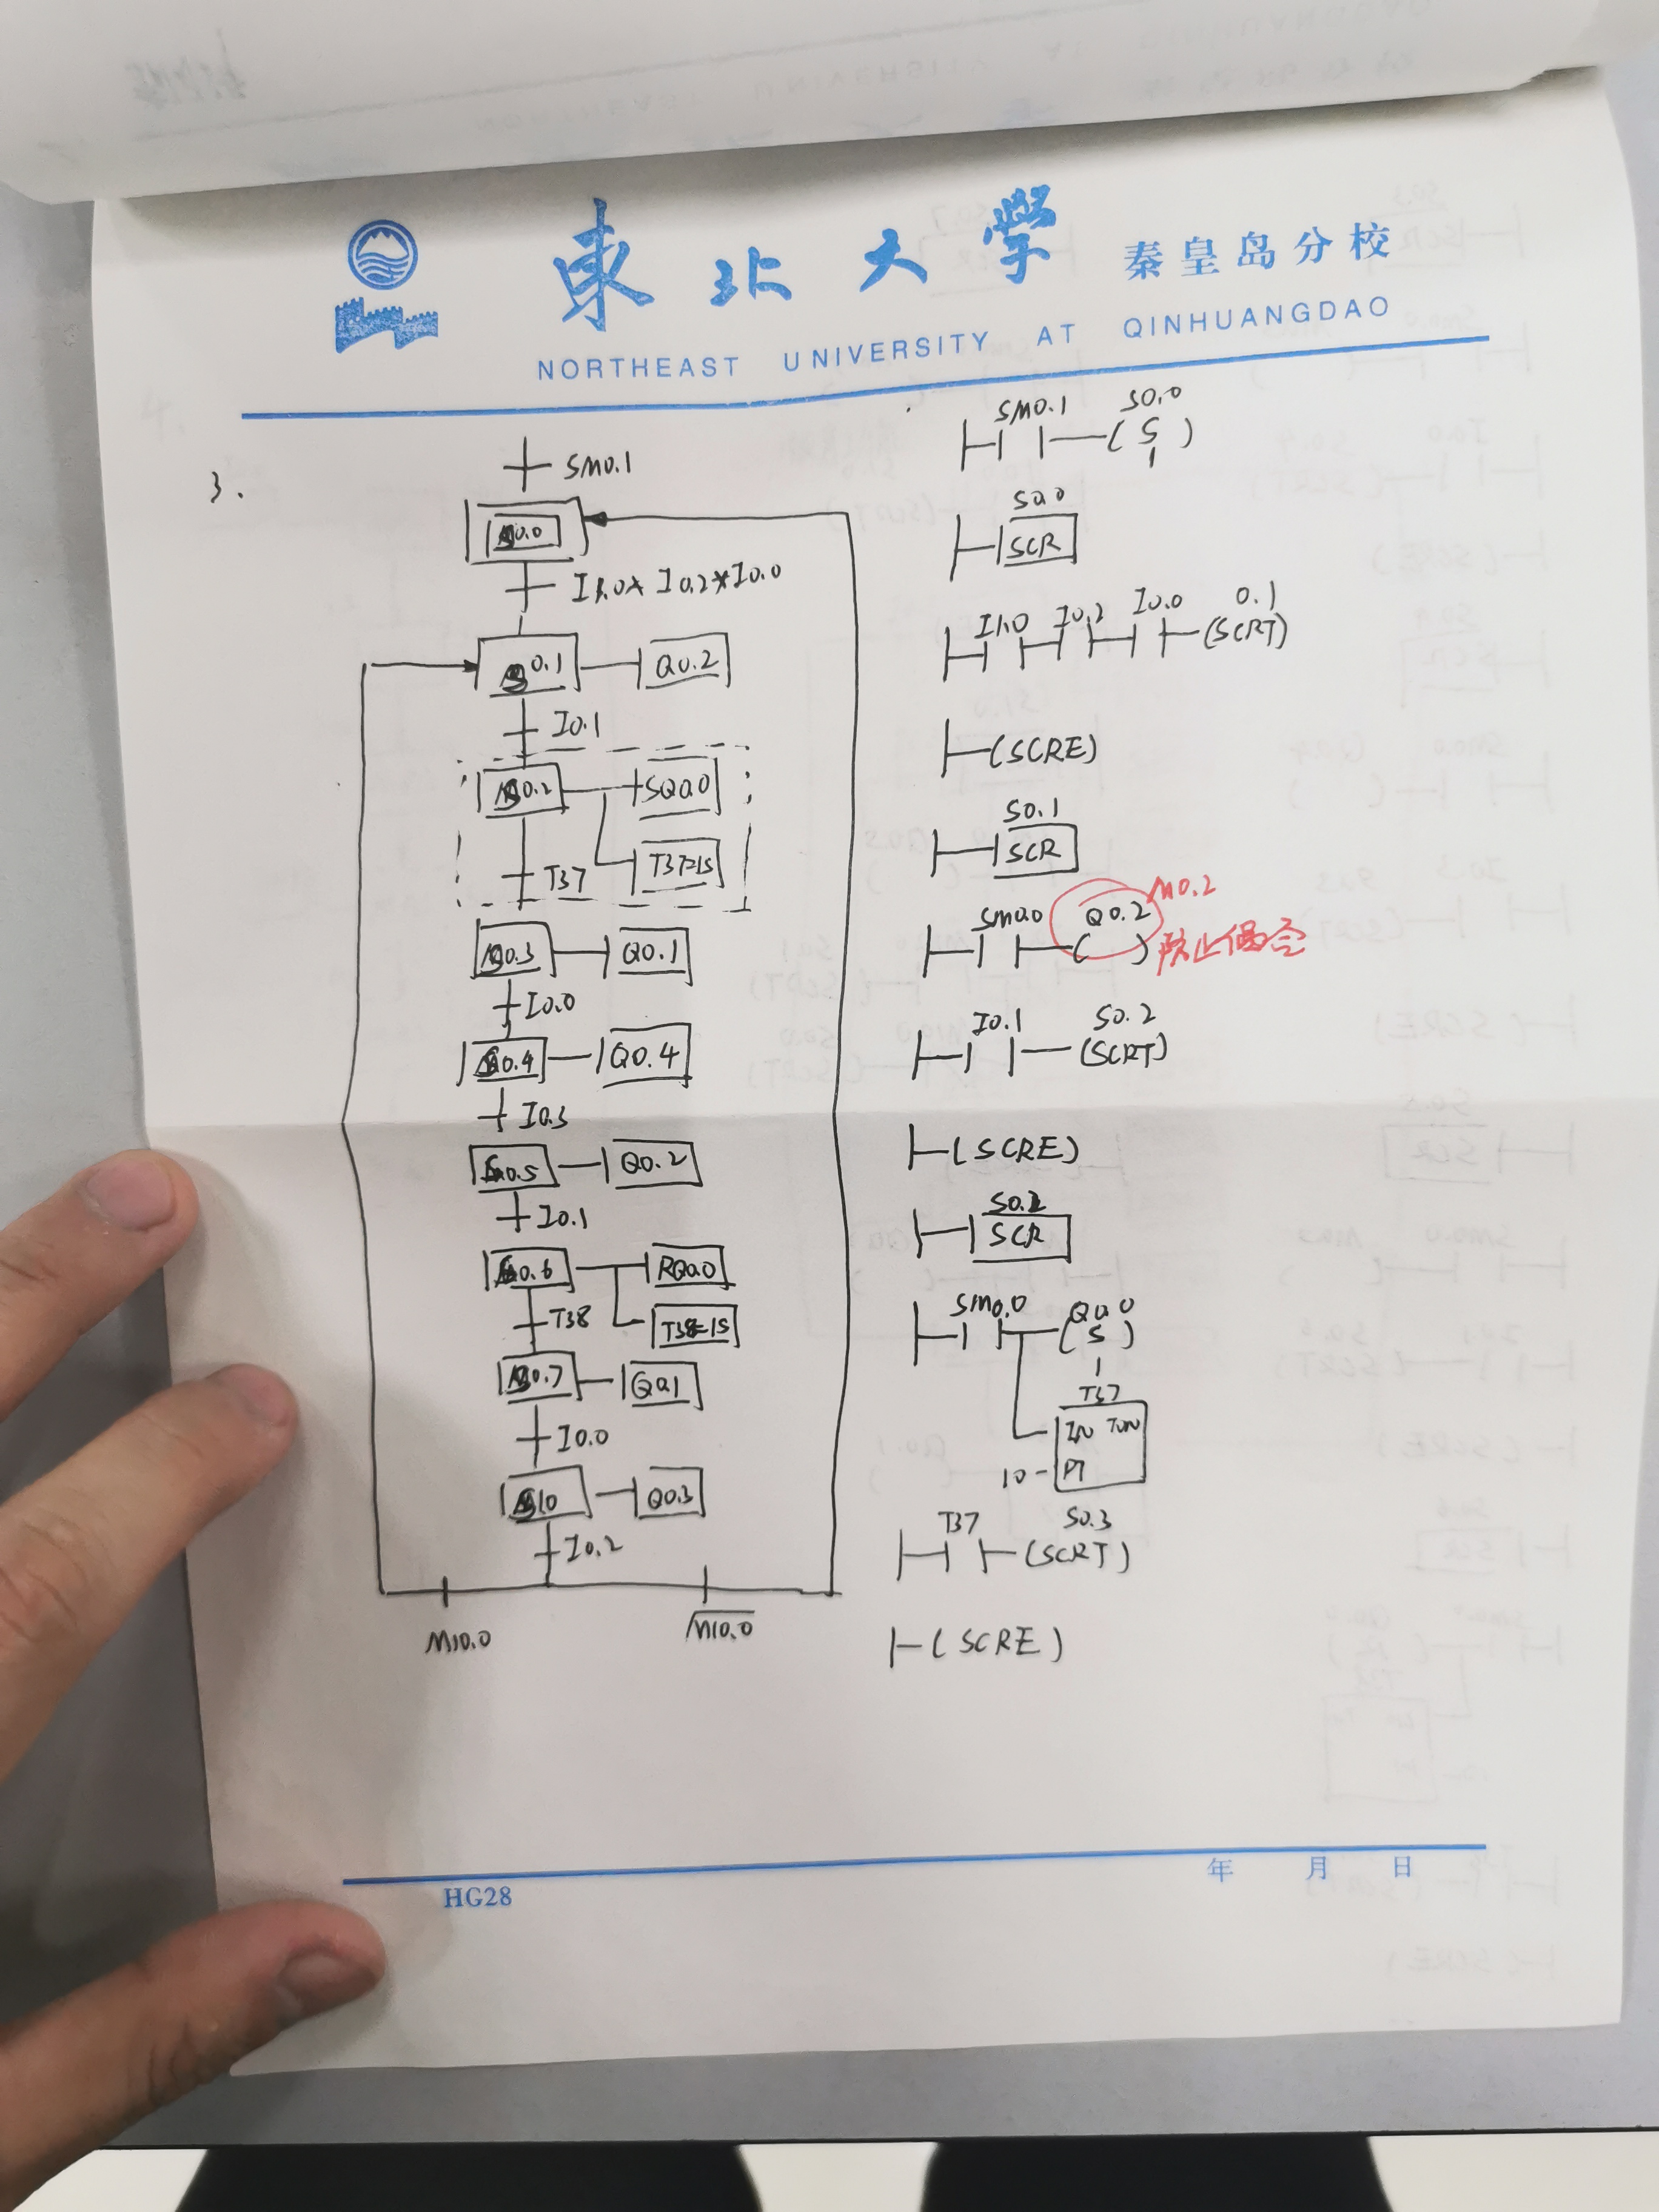 東北大學 秦皇岛分校
NORTHEAST UNIVERSITY AT QINHUANGDAO
3.
SM0.1
S0.0
I1.0* I0.2*I0.0
S0.1
Q0.2
I0.1
S0.2
SQ0.0
T37=1S
T37
S0.3
Q0.1
I0.0
S0.4
Q0.4
I0.3
S0.5
Q0.2
I0.1
S0.6
RQ0.0
T38=1S
T38
S0.7
Q0.1
I0.0
S10
Q0.3
I0.2
M10.0
M10.0
SM0.1 S0.0
( S )
1
S0.0
SCR
I1.0 I0.2 I0.0 0.1
(SCRT)
(SCRE)
S0.1
SCR
SM0.0 Q0.2 M0.2
( ) 防止偶合
I0.1 S0.2
(SCRT)
(SCRE)
S0.2
SCR
SM0.0 Q0.0
( S )
1
T37
IN TON
10- PT
T37 S0.3
(SCRT)
(SCRE)
年 月 日
HG28